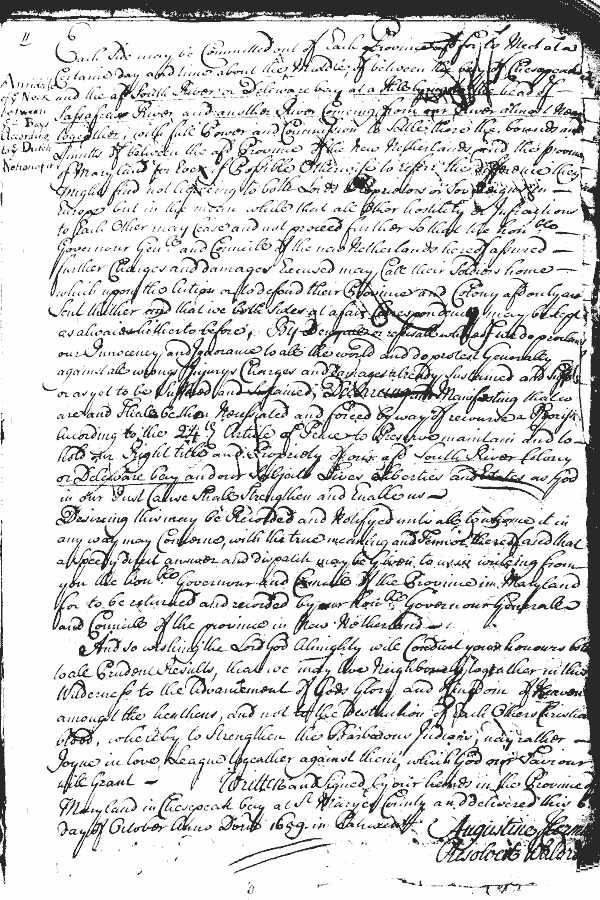 11
Each Side may be Committed out of Each Province for to Meet at a
Certaine day and time about the Middle, of between the bay of Chesapeake
and the afd South River or Delaware bay at a Hill the head of
Sassafrax River and another River Coming from our River almost Near
together, with full Power and Commission to Settle there the bounds and
Limitts of between the afd Province of the New Netherlands and the province
of Maryland for Ever if Possible Otherwise to referr the difference they
might find not lie to both Lords Proprietors or Sovereigns in
Europe but in the mean while that all other hostility or Infractions
to Each Other may Cease and not proceed further so that the honble
Governour Genll and Councill of the new Netherlands hereof assured
further Charges and damages Excused may Call their Soldiers home
which upon the Action also to defend their Province and Colony afd only are
Sent thither and that we both Sides at a fair Correspondence may be kept
as alwaies hetherto before, By denyall or refusall whereof we do proclaim
our Innocency and Ignorance to all the world and do protest Generally
against all wrongs Injurys Charges and Damages already Sustained and Suffer
or as yet to be Suffered and Sustained, Declaring and Manifesting that we
are and Shall be then Necessitated and forced by way of recourse a
according to the 24th Article of Peace to Preserve maintain and to
hold our Right title and Propriety of our afd South River Colony
or Delaware bay and our Subjects Lives Liberties and Estates as God
in our Just Cause Shall Strengthen and Enable us
Desireing this may be Recorded and Notifyed unto all to whome it in
any way may Concerne, with the true meaning and Tennor thereof and that
a Speedy direct answer and dispatch may be Given to us in writeing from
you the honble Governour and Councill of the Province in Maryland
for to be returned and recorded by our honble Governour Generall
and Councill of the province in New Netherland
And so wishing the Lord God Almighty will Conduct your honours both
to all Prudent Results, that we may live Neighbourly together in this
Wilderness to the Advancement of Gods Glory and Kingdom of Heaven
amongst the heathens, and not to the Destruction of Each Others Christian
blood, whereby to Strengthen the Barbarous Indians, may rather
Joyne in love, League together against them, which God our Saviour
will Grant Written and Signed by our hands in the Province
Maryland in Chesepeak bay at St Maryes County and delivered this 6
day of October Anno Domi 1659 in
Augustine
Resolved Waldr
A midst
of ye Neck
between
ye Bays
According
to ye Dutch
Notion